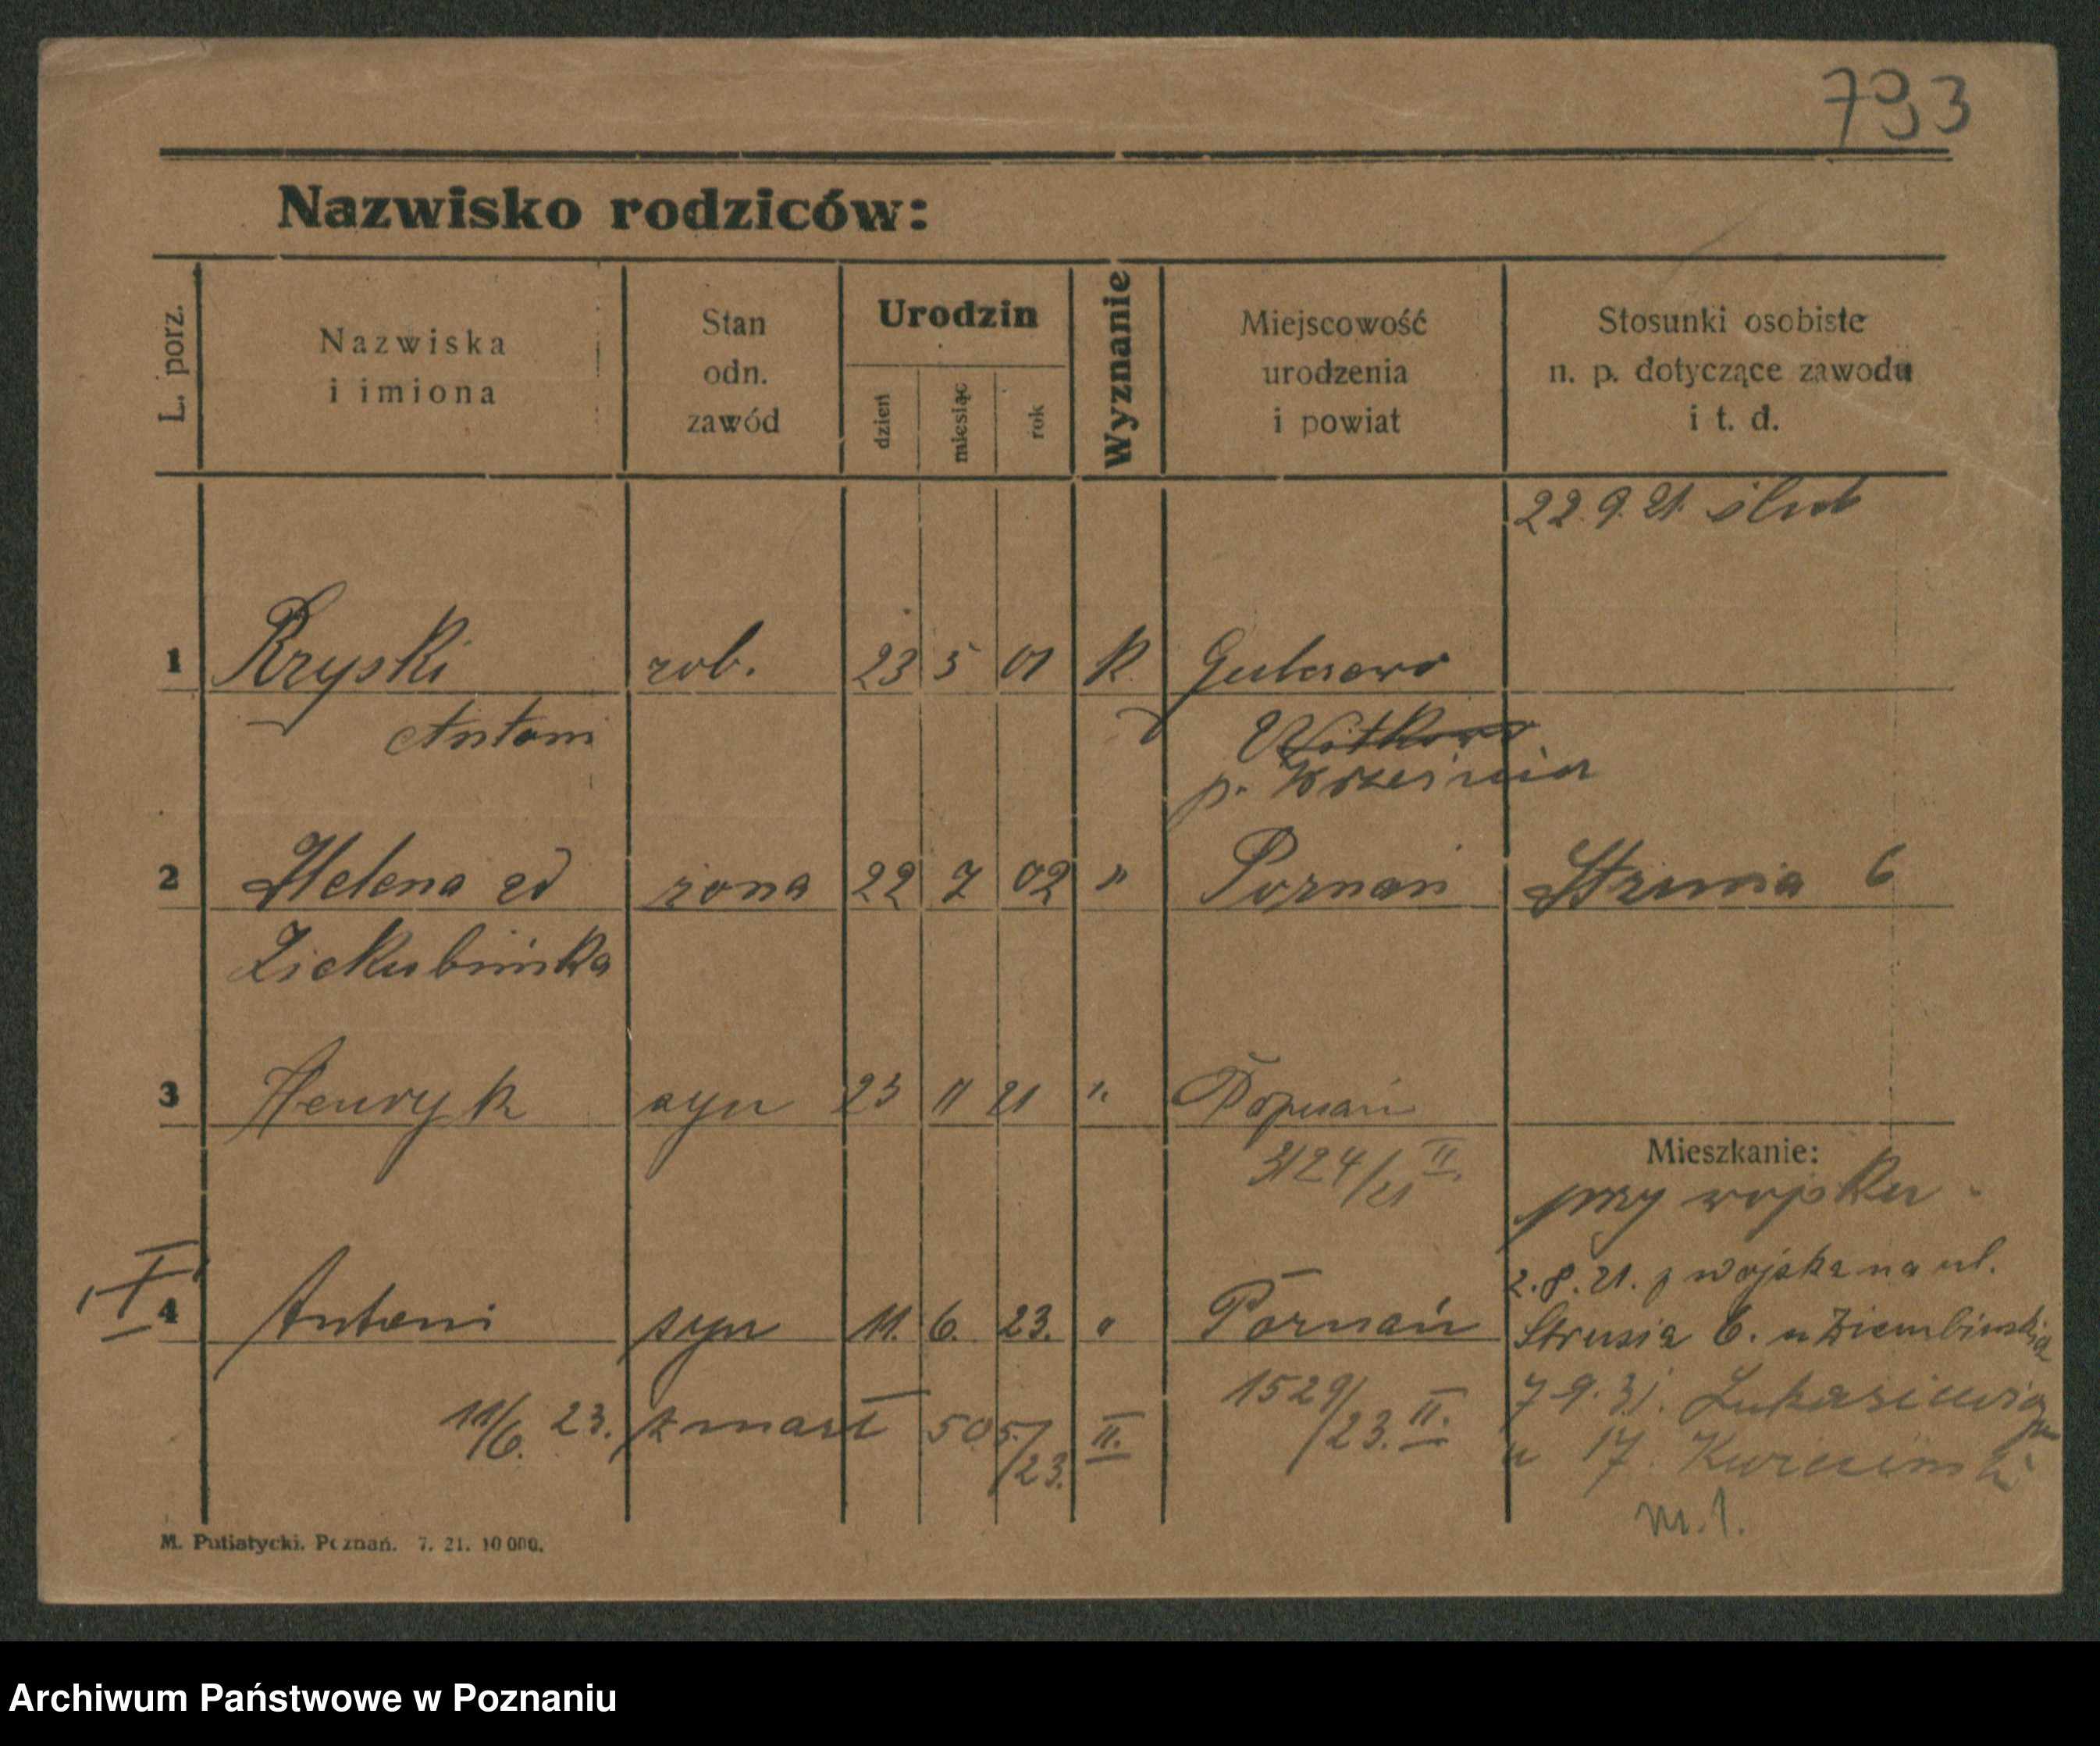 793
Nazwisko rodziców:
L. porz.
Nazwiska
i imiona
Stan
odn.
zawód
Urodzin
dzień
miesiąc
rok
Wyznanie
Miejscowość
urodzenia
i powiat
Stosunki osobiste
n. p. dotyczące zawodu
i t. d.
22.9.21. ślub
1 Kryski rob. 23 5 01 K.
Antoni Witkowo
p. Września
2 Helena żona 22 7 02 " Poznań 6
3 Henryk syn 23 11 21 " Poznań
Mieszkanie:
3124/21 II.
przy wojsku
2.8.21. z wojska na ul.
I 4 Antoni syn 11. 6. 23. " Poznań Strusia 6. u
11/6. 23. zmarł 505/23. II. 1529/23. II. 7 9. 31.
u 17
m. 1.
M. Putiatycki. Poznań. 7. 21. 10 000.
Archiwum Państwowe w Poznaniu